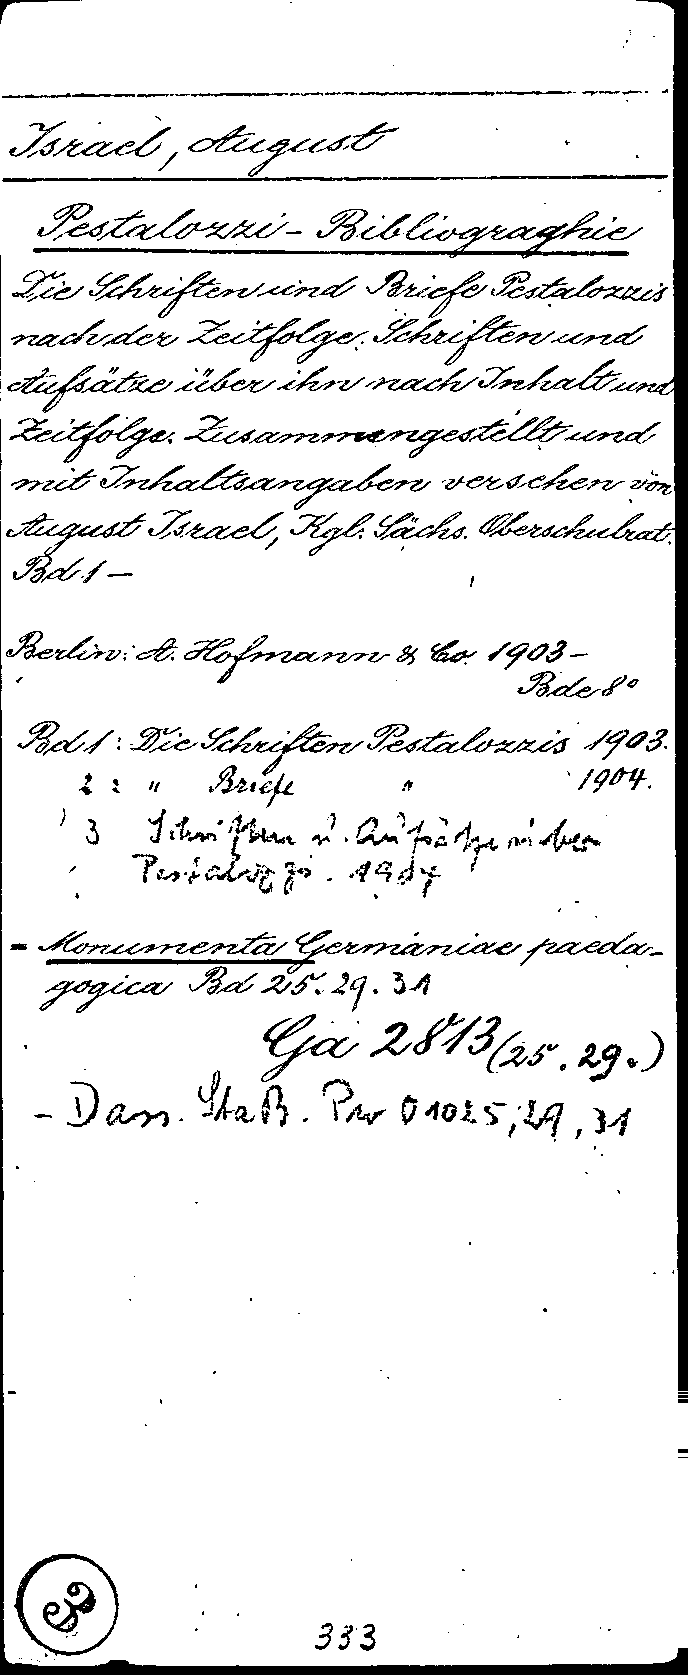 Israel, August
Pestalozzi-Bibliographie
Die Schriften und Briefe Pestalozzis
nach der Zeitfolge. Schriften und
Aufsätze über ihn nach Inhalt und
Zeitfolge. Zusammengestellt und
mit Inhaltsangaben versehen von
August Israel, Kgl. Sächs. Oberschulrat.
Bd 1 –
Berlin: A. Hofmann & Co. 1903 –
Bde 8°
Bd 1: Die Schriften Pestalozzis 1903.
2: " Briefe " 1904.
3 Schriften u. Aufsätze über
Pestalozzi. 1904
= Monumenta Germaniae paeda-
gogica Bd 25. 29. 31
Ga 2813 (25. 29.)
– Dan. StaB. Pw 01025, 29, 31
3
333